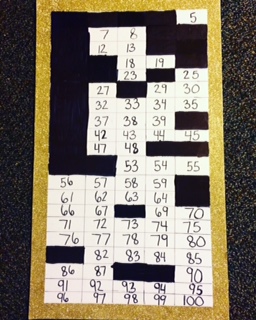 5
7 8
12 13
18 19
23 25
27 29 30
32 33 34 35
37 38 39
42 43 44 45
47 48
53 54 55
56 57 58 59
61 62 63 64
66 67 69 70
71 72 73 74 75
76 77 78 79 80
82 83 84 85
86 87 90
91 92 93 94 95
96 97 98 99 100